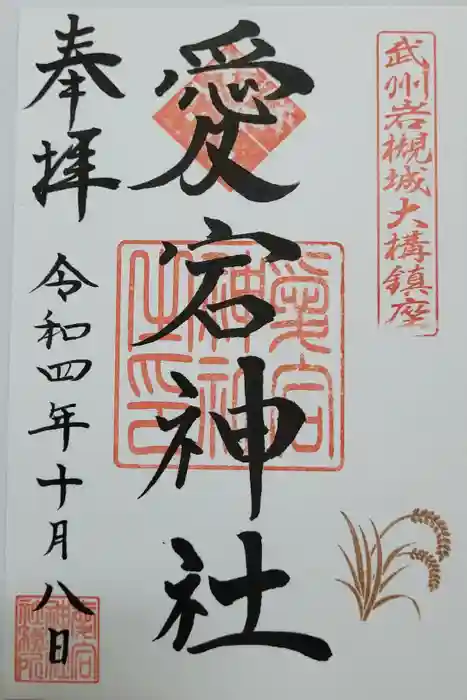 武州岩槻城大構鎮座
愛宕神社
愛宕
神社
之印
奉拝
令和四年十月八日
愛宕
神社